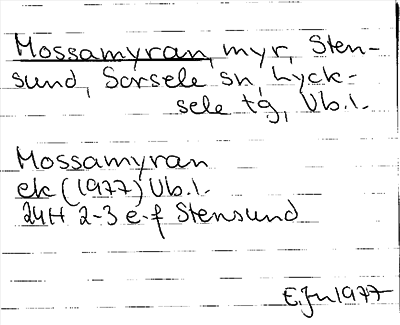 Mossamyran, myr, Sten-
sund, Sorsele sn, Lyck-
sele tg, Vb.l.
Mossamyran
ek (1977) Vb.l.
24H 2-3 e-f Stensund
E.Jn 1977